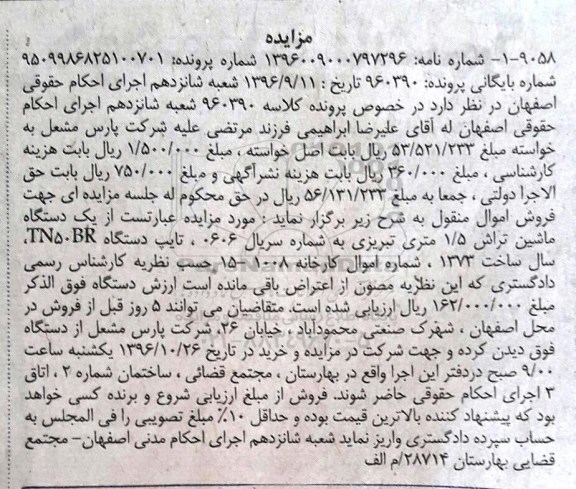 مزایده
۱-۹۰۵۸- شماره نامه: ۱۳۹۶۰۰۹۰۰۰۷۹۷۲۹۶ شماره پرونده: ۹۵۰۹۹۸۶۸۲۵۱۰۰۷۰۱
شماره بایگانی پرونده: ۹۶۰۳۹۰ تاریخ : ۱۳۹۶/۹/۱۱ شعبه شانزدهم اجرای احکام حقوقی
اصفهان در نظر دارد در خصوص پرونده کلاسه ۹۶۰۳۹۰ شعبه شانزدهم اجرای احکام
حقوقی اصفهان له آقای علیرضا ابراهیمی فرزند مرتضی علیه شرکت پارس مشعل به
خواسته مبلغ ۵۳/۵۲۱/۲۳۳ ریال بابت اصل خواسته ، مبلغ ۱/۵۰۰/۰۰۰ ریال بابت هزینه
کارشناسی ، مبلغ ۳۶۰/۰۰۰ ریال بابت هزینه نشرآگهی و مبلغ ۷۵۰/۰۰۰ ریال بابت حق
الاجرا دولتی ، جمعا به مبلغ ۵۶/۱۳۱/۲۳۳ ریال در حق محکوم له جلسه مزایده ای جهت
فروش اموال منقول به شرح زیر برگزار نماید : مورد مزایده عبارتست از یک دستگاه
ماشین تراش ۱/۵ متری تبریزی به شماره سریال ۰۶۰۶ ، تایپ دستگاه TN۵۰BR،
سال ساخت ۱۳۷۳ ، شماره اموال کارخانه ۱۰۰۸-۱۵ حسب نظریه کارشناس رسمی
دادگستری که این نظریه مصون از اعتراض باقی مانده است ارزش دستگاه فوق الذکر
مبلغ ۱۶۲/۰۰۰/۰۰۰ ریال ارزیابی شده است. متقاضیان می توانند ۵ روز قبل از فروش در
محل اصفهان ، شهرک صنعتی محمودآباد ، خیابان ۲۶، شرکت پارس مشعل از دستگاه
فوق دیدن کرده و جهت شرکت در مزایده و خرید در تاریخ ۱۳۹۶/۱۰/۲۶ یکشنبه ساعت
۹/۰۰ صبح دردفتر این اجرا واقع در بهارستان ، مجتمع قضائی ، ساختمان شماره ۲ ، اتاق
۳ اجرای احکام حقوقی حاضر شوند. فروش از مبلغ ارزیابی شروع و برنده کسی خواهد
بود که پیشنهاد کننده بالاترین قیمت بوده و حداقل ۱۰٪ مبلغ تصویبی را فی المجلس به
حساب سپرده دادگستری واریز نماید شعبه شانزدهم اجرای احکام مدنی اصفهان- مجتمع
قضایی بهارستان ۲۸۷۱۴/م الف